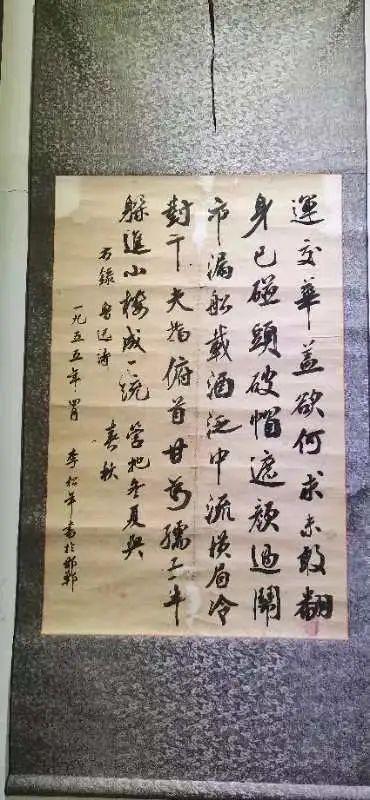 運交華蓋欲何求未敢翻
身已碰頭破帽遮顏過鬧
市漏船載酒泛中流橫眉冷
對千夫指俯首甘為孺子牛
躲進小樓成一統管他冬夏與
春秋
右錄魯迅詩
一九五五年四月李松年書於邯鄲